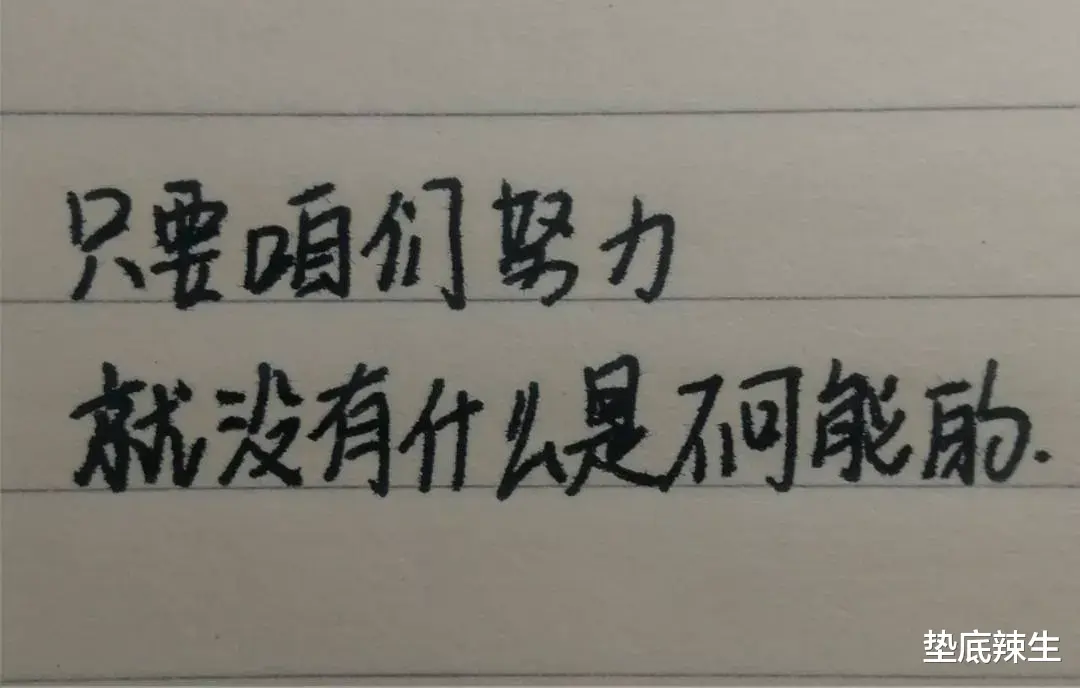 只要咱们努力
就没有什么是不可能的.
垫底辣生